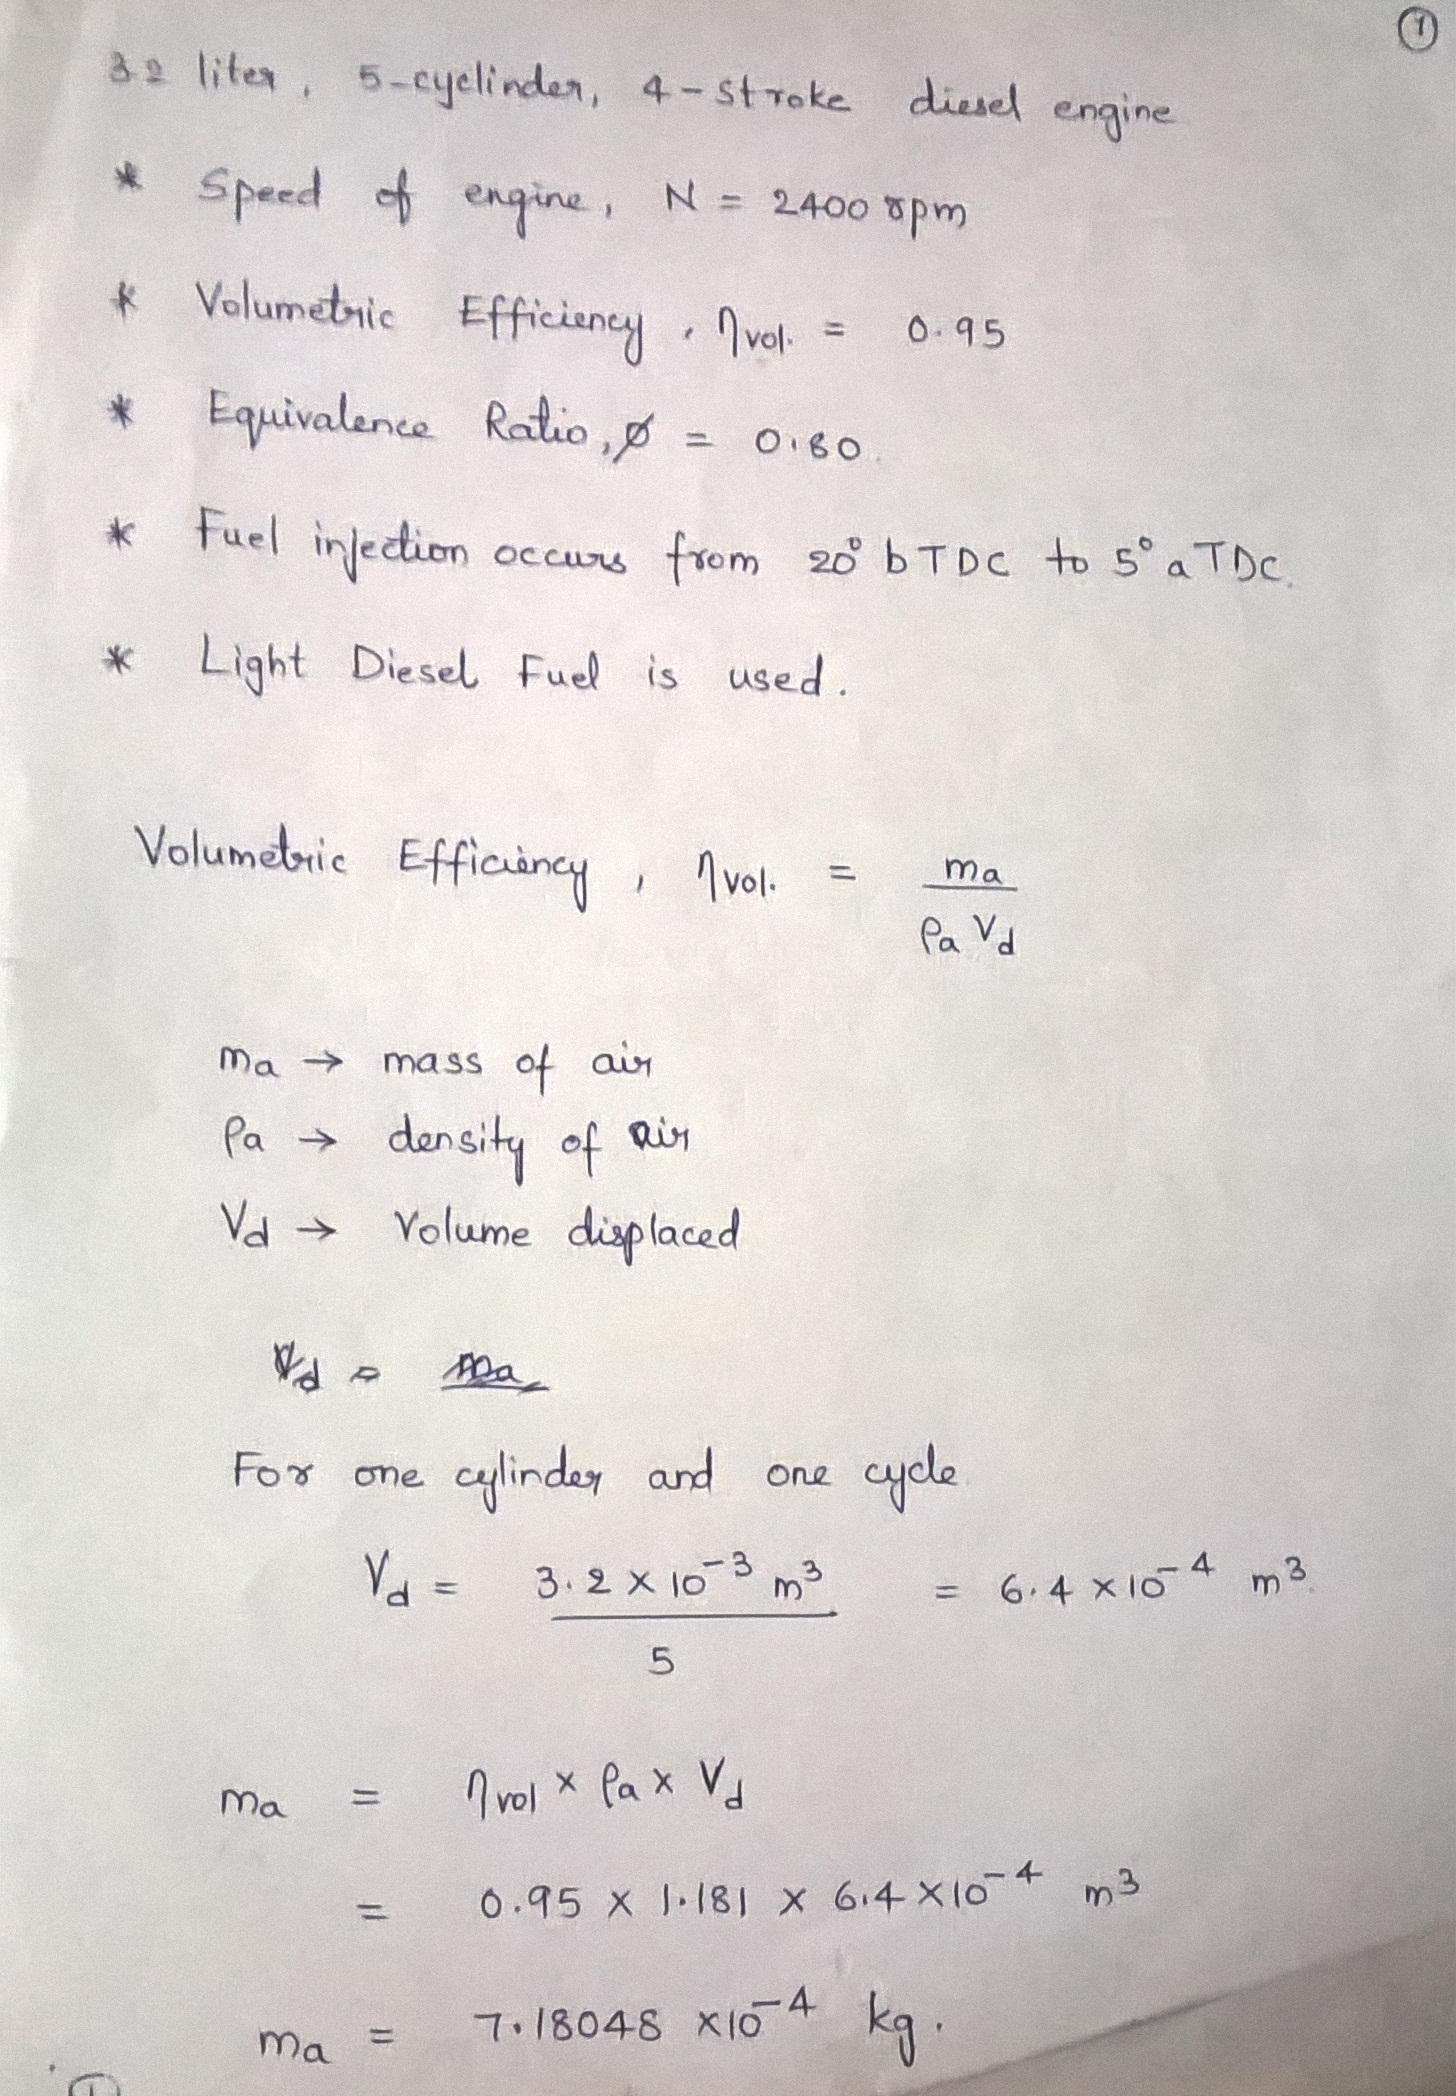 ①
3.2 liter, 5-cyclinder, 4-stroke diesel engine
* Speed of engine, N = 2400 rpm
* Volumetric Efficiency, ηvol. = 0.95
* Equivalence Ratio, Ø = 0.80.
* Fuel injection occurs from 20° bTDC to 5° aTDC.
* Light Diesel Fuel is used.
Volumetric Efficiency, ηvol. = ma / ρa Vd
ma → mass of air
ρa → density of air
Vd → Volume displaced
Vd = ma
For one cylinder and one cycle
Vd = 3.2 × 10⁻³ m³ / 5 = 6.4 × 10⁻⁴ m³.
ma = ηvol × ρa × Vd
= 0.95 × 1.181 × 6.4 × 10⁻⁴ m³
ma = 7.18048 × 10⁻⁴ kg.